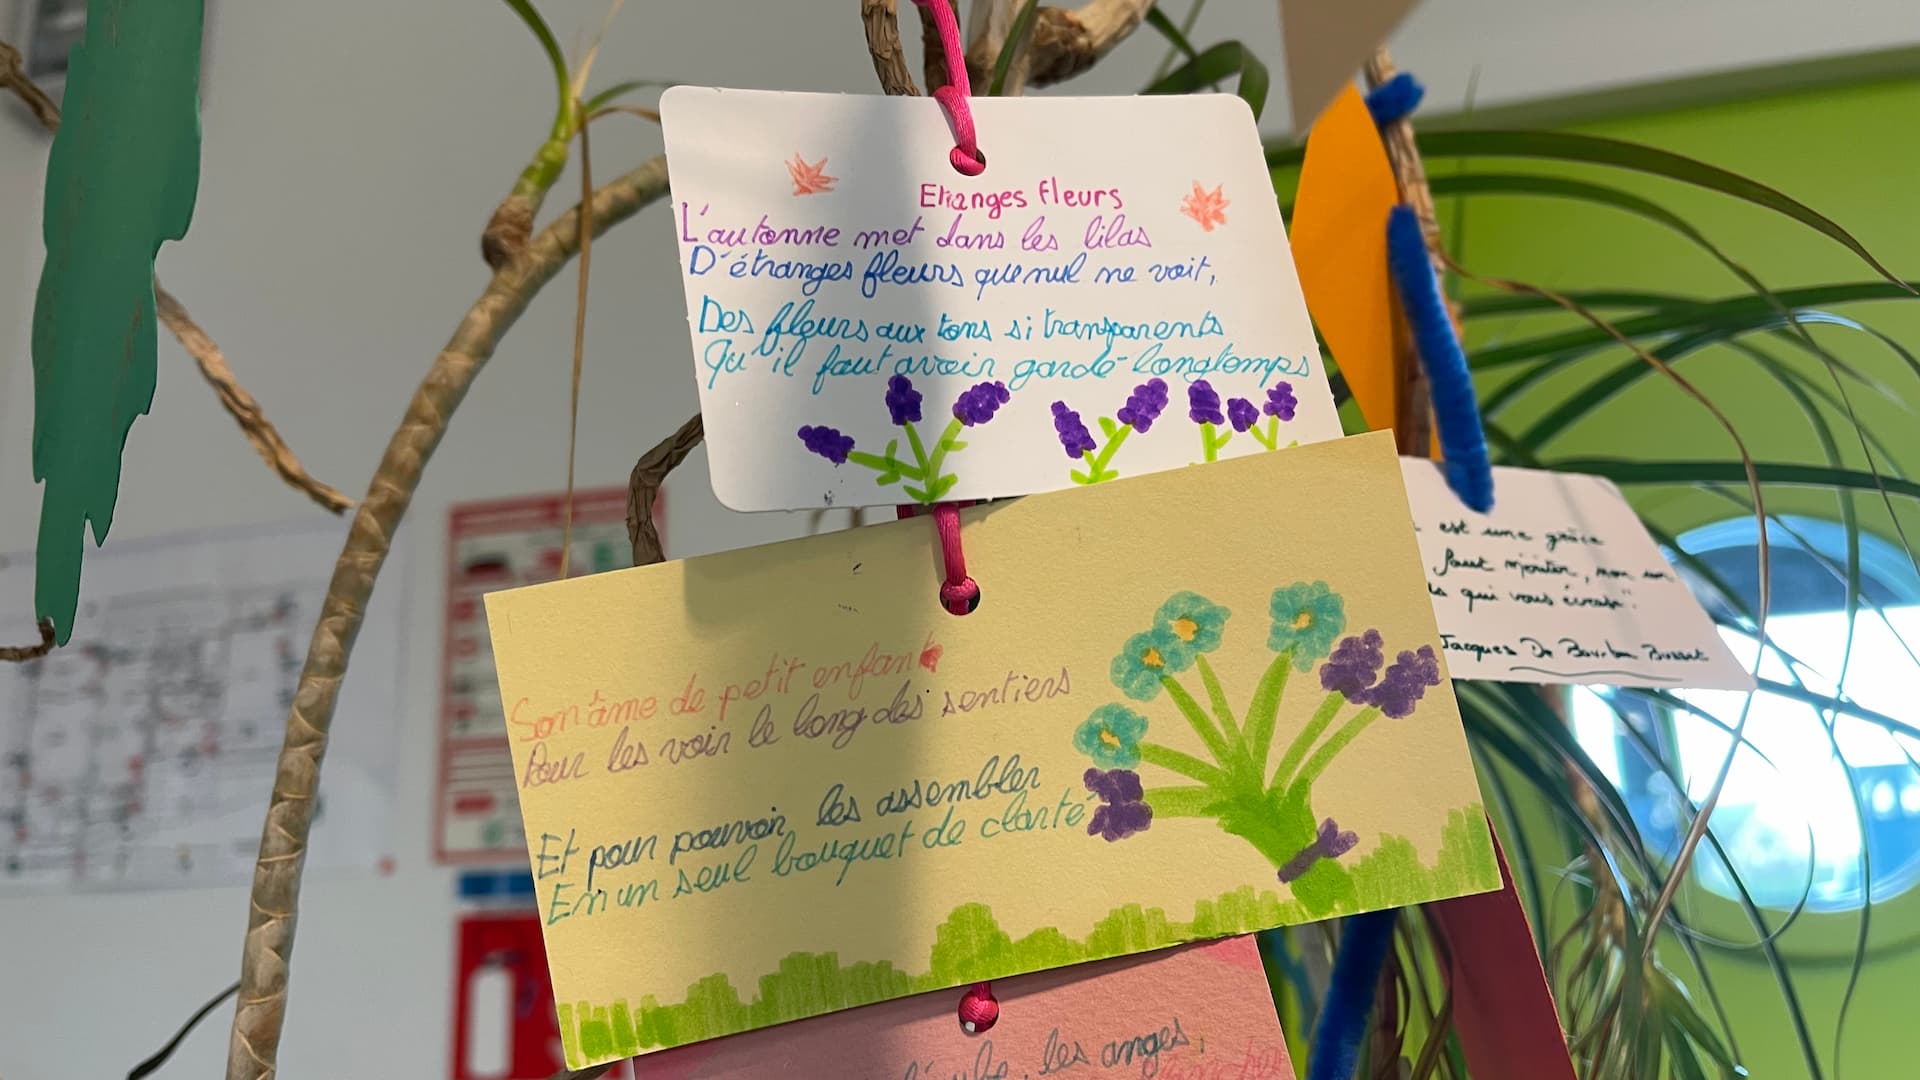 Etranges fleurs
L'automne met dans les lilas
D'étranges fleurs que nul ne voit,
Des fleurs aux tons si transparents
Qu'il faut avoir gardé longtemps
Son âme de petit enfant
Pour les voir le long des sentiers
Et pour pouvoir les assembler
En un seul bouquet de clarté
l'aube, les anges
est une grâce
faut m'outer, non un
qui vous écrase".
Jacques De Bourbon Busset